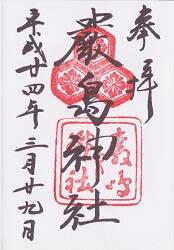 奉拝
嚴島神社
嚴嶋神社
平成廿四年三月廿九日